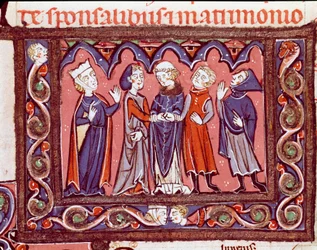 de sponsalibus ⁊ matrimonio